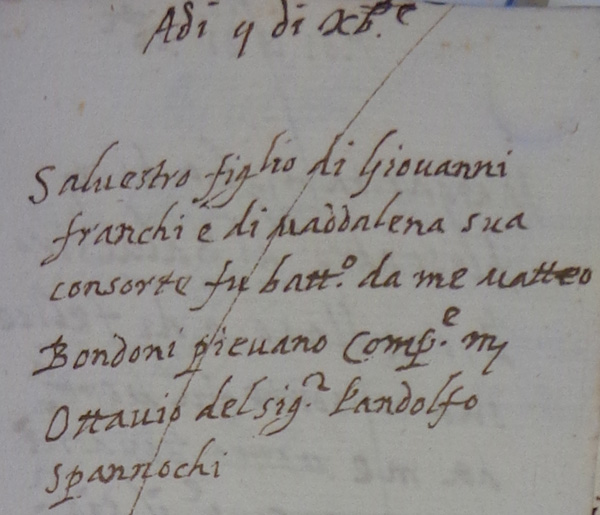 Adi 9 di Xb.re
Saluestro figlio di Giouanni
franchi è di Maddalena sua
consorte fu batt.o da me Matteo
Bondoni pieuano Comp.e m
Ottauio del sig.r Pandolfo
spannochi